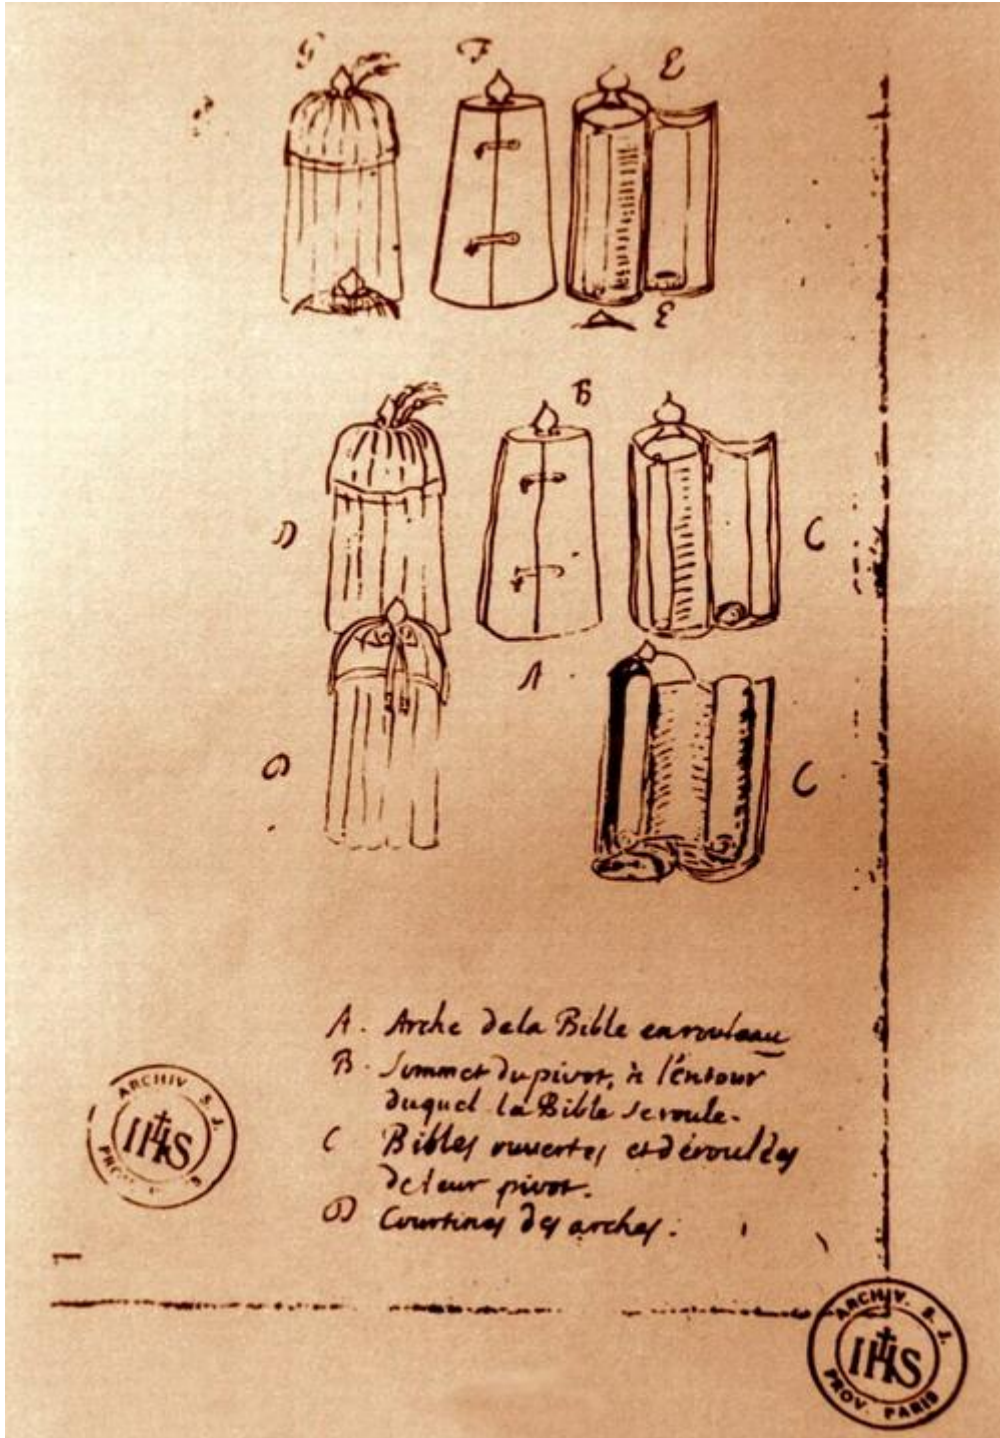 G F E
E
B
D C
A
D C
A. Arche dela Bible en rouleau
B. Sommet du pivot, à l'entour
duquel la Bible se roule.
C Bibles ouvertes et déroulées
de leur pivot.
D Courtines des arches.
ARCHIV. S. J.
IHS
ARCHIV. S. J.
IHS
PROV. PARIS